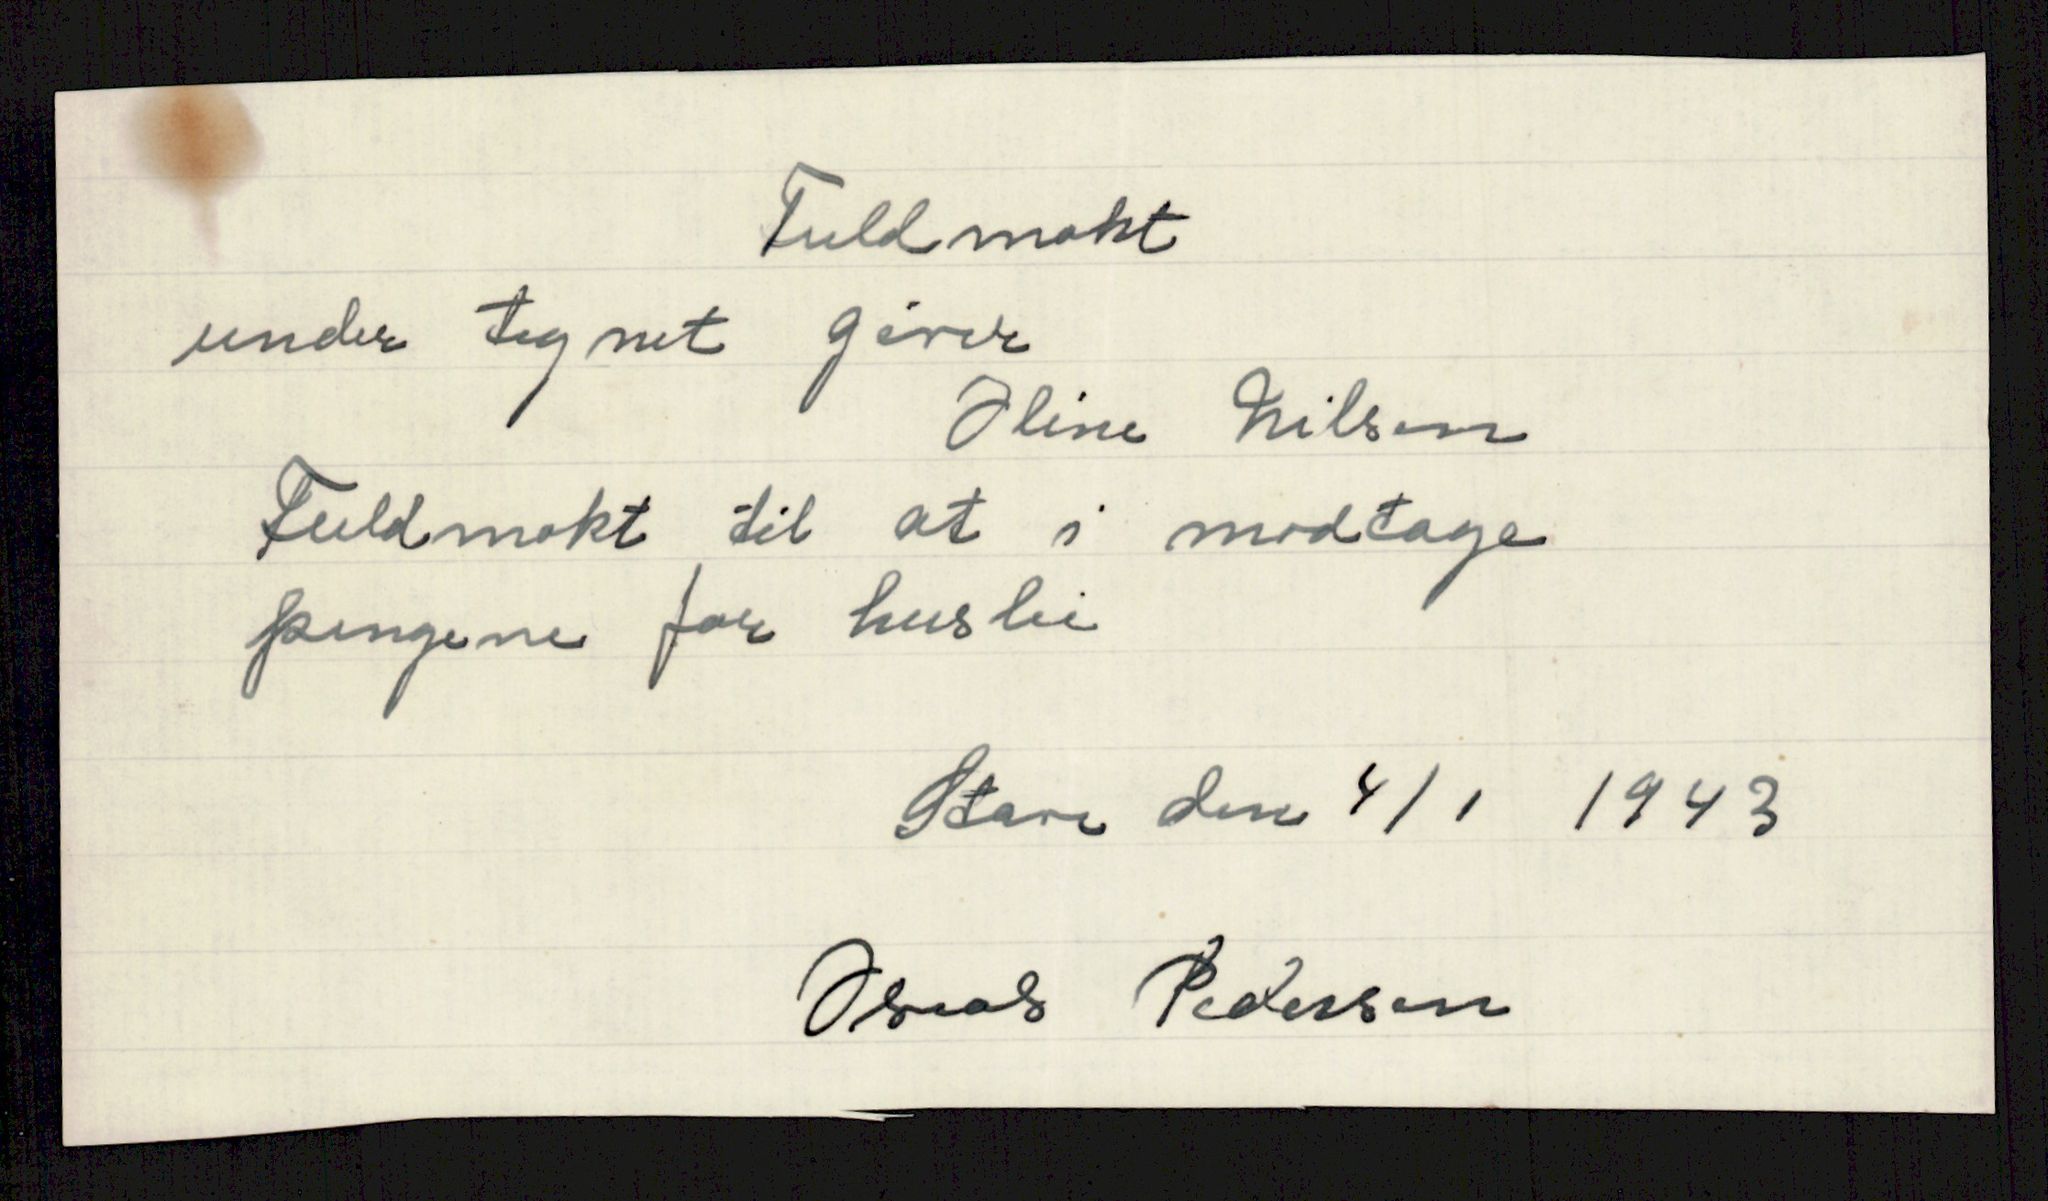 Fuldmakt
under tegnet giver
Oline Nilsen
Fuldmakt til at i modtage
pengene for huslei
Stave den 4/1 1943
Pedersen